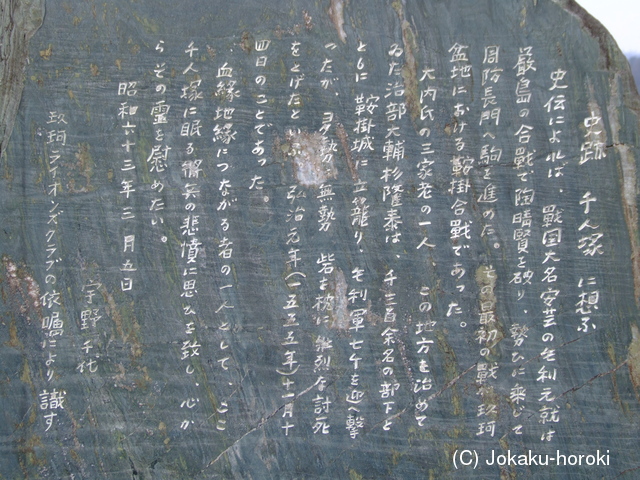 史跡 千人塚 に想ふ
史伝によれば、戰国大名安芸の毛利元就は
厳島の合戰で陶晴賢を破り、勢ひに乗じて
周防長門へ駒を進めた。その最初の戰が玖珂
盆地における鞍掛合戰であった。
大内氏の三家老の一人 この地方を治めて
ゐた治部大輔杉隆泰は、千三百余名の部下と
ともに鞍掛城に立篭り、毛利軍七千を迎へ撃
ったが、多勢に無勢 砦を枕に壮烈な討死
をとげたといふ。弘治元年(一五五五年)十一月十
四日のことであった。
血縁地縁につながる者の一人として、ここ
千人塚に眠る將兵の悲憤に思ひを致し、心か
らその霊を慰めたい。
昭和六十三年三月五日
宇野千代
玖珂ライオンズクラブの依嘱により 識す
(C) Jokaku-horoki